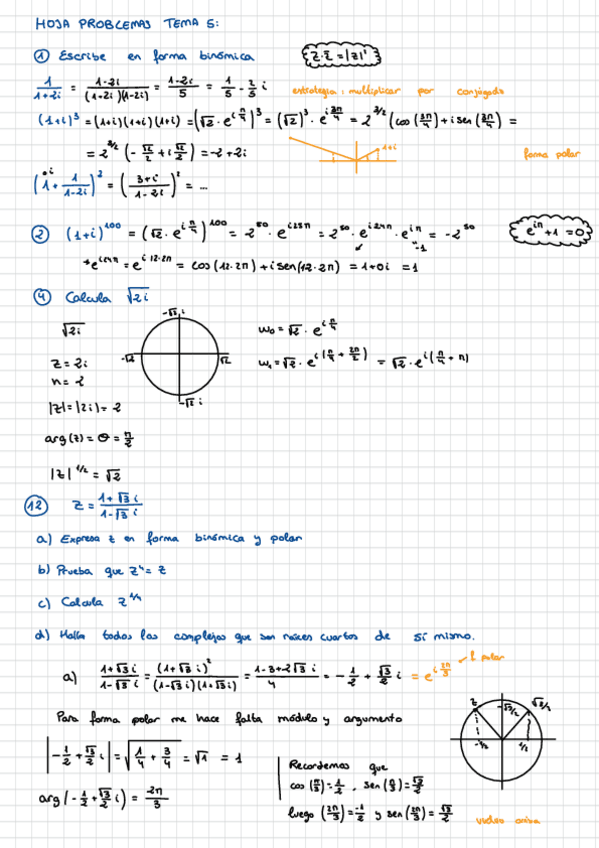 HOJA PROBLEMAS TEMA 5:
① Escribe en forma binómica
z·z̄ = |z|²
1/(1+2i) = (1-2i)/((1-2i)(1-2i)) = (1-2i)/5 = 1/5 - 2/5 i
estrategia: multiplicar por conjugado
(1+i)³ = (1+i)(1+i)(1+i) = (√2 · e^(i π/4))³ = (√2)³ · e^(i 3π/4) = 2^(3/2) (cos(3π/4) + i sen(3π/4)) =
= 2^(3/2) (-√2/2 + i √2/2) = -2 + 2i
1+i
forma polar
(1 + 1/(1-2i))² = ((3+i)/(1-2i))² = ...
② (1+i)^100 = (√2 · e^(i π/4))^100 = 2^50 · e^(i25π) = 2^50 · e^(i24π) · e^(iπ) = -2^50
e^(iπ) + 1 = 0
"-1
*e^(i24π) = e^(i 12·2π) = cos(12·2π) + i sen(12·2π) = 1 + 0i = 1
④ Calcula √2i
√2i
-√2 i
-√2
√2
-√2 i
w₀ = √2 · e^(i π/4)
w₁ = √2 · e^(i(π/4 + 2π/2)) = √2 · e^(i(π/4 + π))
z = 2i
n = 2
|z| = |2i| = 2
arg(z) = θ = π/2
|z|^(1/2) = √2
⑫ z = (1+√3 i)/(1-√3 i)
a) Expresa z en forma binómica y polar
b) Prueba que z⁴ = z
c) Calcula z^(1/4)
d) Halla todos los complejos que son raíces cuartas de sí mismo.
a) (1+√3 i)/(1-√3 i) = (1+√3 i)²/((1-√3 i)(1+√3 i)) = (1-3+2√3 i)/4 = -1/2 + √3/2 i = e^(i 2π/3)
f. polar
Para forma polar me hace falta módulo y argumento
z
-√3/2
√3/2
-1/2
1/2
|-1/2 + √3/2 i| = √(1/4 + 3/4) = √1 = 1
arg(-1/2 + √3/2 i) = 2π/3
Recordemos que
cos(π/3) = 1/2 , sen(π/3) = √3/2
luego (2π/3) = -1/2 y sen(2π/3) = √3/2